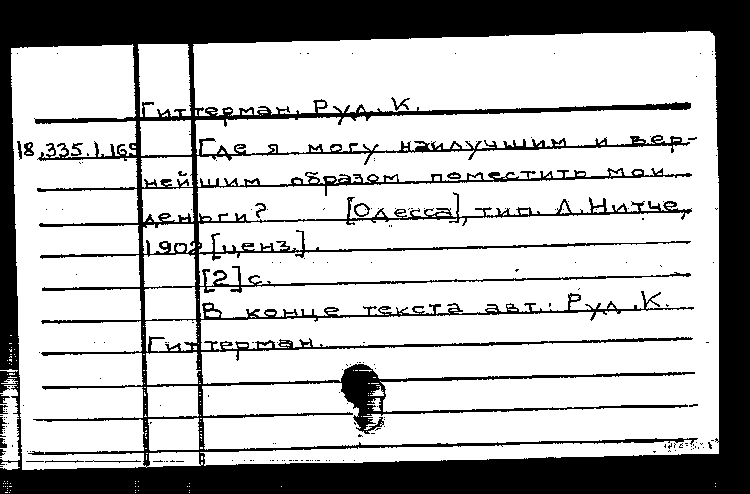 Гиттерман, Руд. К.
18.335.1.165 Где я могу наилучшим и вер-
нейшим образом поместить мои
деньги? [Одесса], тип. Л. Нитче,
1902 [ценз.].
[2] с.
В конце текста авт.: Руд. К.
Гиттерман.